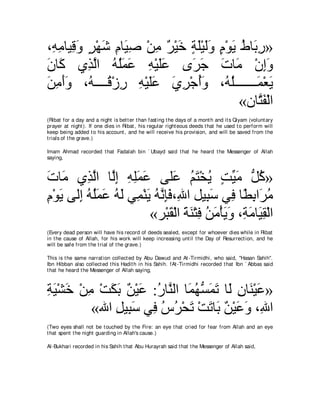 «رِبَاطُ يَوْمٍ وَلَيْلَةٍ خَيْرٌ مِنْ صِيَامِ شَهْرٍ وَقِيَامِهِ،
وَإِنْ مَاتَ جَرَى عَلَيْهِ عَمَلُهُ الَّذِي كَانَ
يَعْمَلُــــــهُ، وَأُجْرِيَ عَلَيْهِ رِزْقُــهُ، وَأَمِنَ
الْفَتَّان»
(Ribat for a day and a night is better than fasting the days of a month and its Qiyam (voluntary
prayer at night). If one dies in Ribat, his regular righteous deeds that he used to perform will
keep being added to his account, and he will receive his provision, and will be saved from the
trials of the grave.)
Imam Ahmad recorded that Fadalah bin `Ubayd said that he heard the Messenger of Allah
saying,
«كُلُّ مَيِّتٍ يُخْتَمُ عَلَى عَمَلِهِ إِلَّا الَّذِي مَاتَ
مُرَابِطًا فِي سَبِيلِ اللهِ، فَإِنَّهُ يَنْمِي لَهُ عَمَلُهُ إِلَى يَوْمِ
الْقِيَامَةِ، وَيَأْمَنُ فِتْنَةَ الْقَبْر»
(Every dead person will have his record of deeds sealed, except for whoever dies while in Ribat
in the cause of Allah, for his work will keep increasing until the Day of Resurrection, and he
will be safe from the trial of the grave.)
This is the same narration collected by Abu Dawud and At-Tirmidhi, who said, "Hasan Sahih".
Ibn Hibban also collected this Hadith in his Sahih. !At-Tirmidhi recorded that Ibn `Abbas said
that he heard the Messenger of Allah saying,
«عَيْنَانِ لَا تَمَسُّهُمَا النَّارُ: عَيْنٌ بَكَتْ مِنْ خَشْيَةِ
اللهِ، وَعَيْنٌ بَاتَتْ تَحْرُسُ فِي سَبِيلِ الله»
(Two eyes shall not be touched by the Fire: an eye that cried for fear from Allah and an eye
that spent the night guarding in Allah's cause.)
Al-Bukhari recorded in his Sahih that Abu Hurayrah said that the Messenger of Allah said,